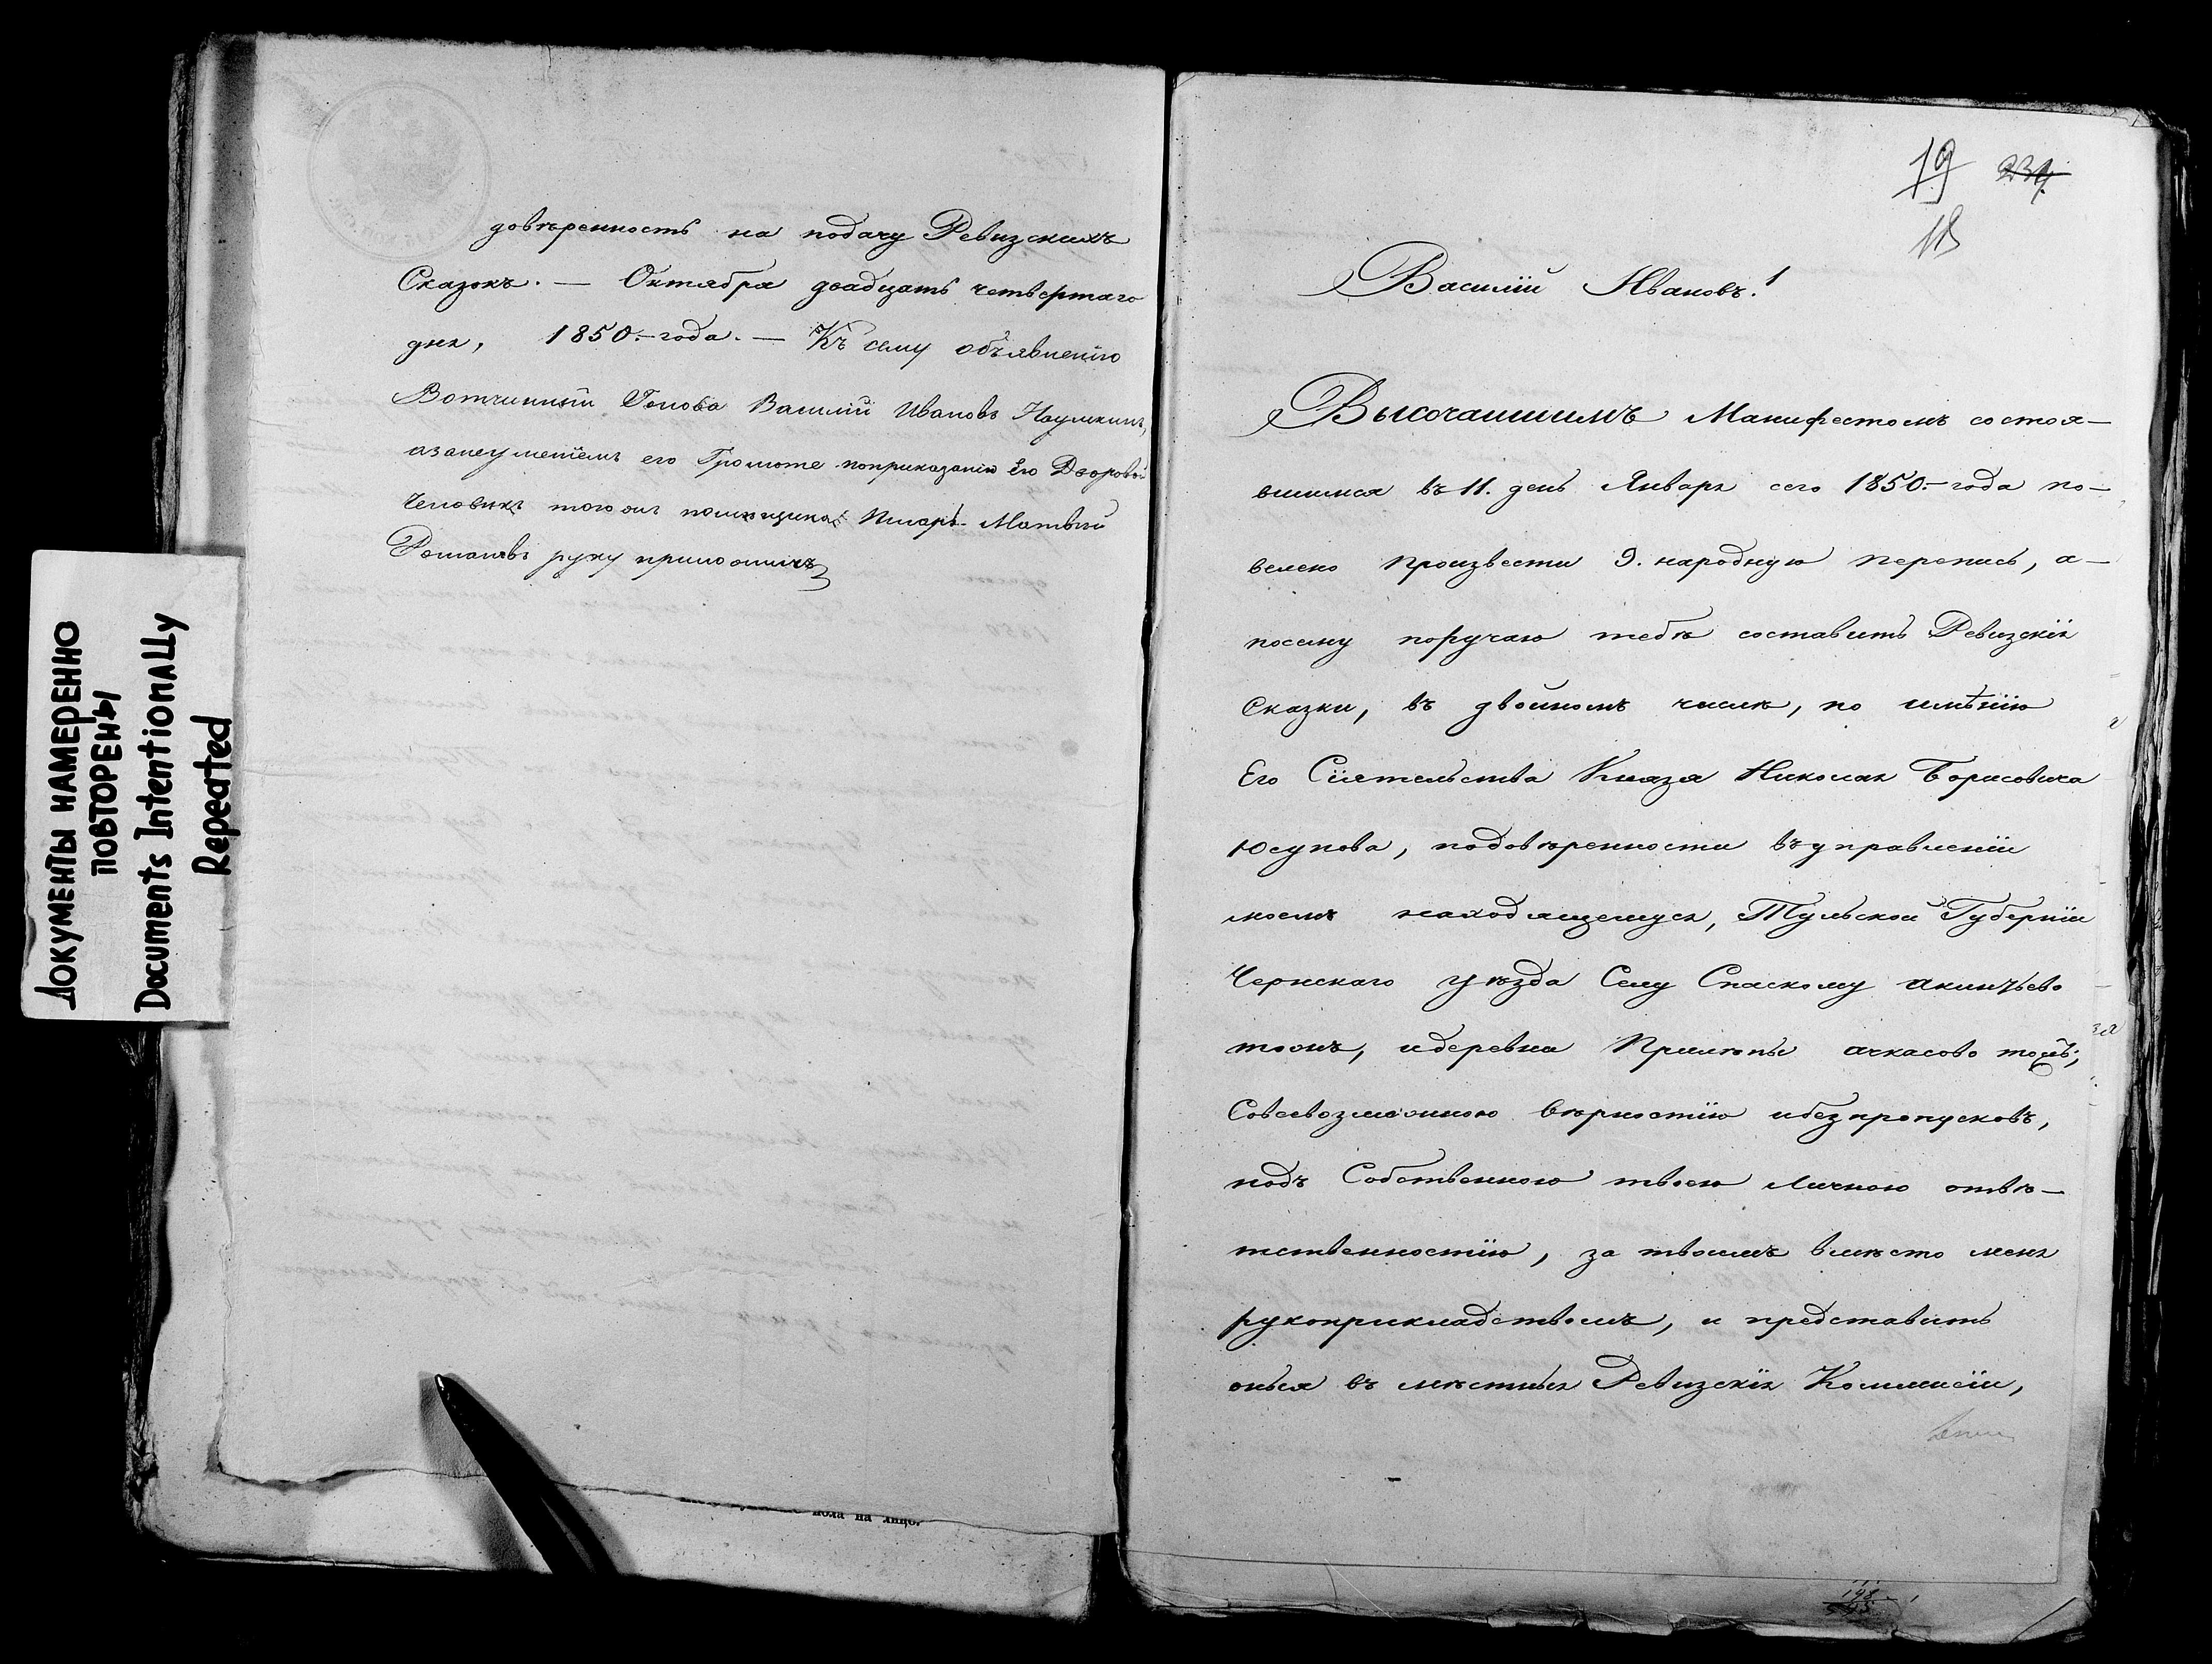 довѣренность на подачу Ревизскихъ
Сказокъ. — Октября двадцать четвертаго
дня, 1850.- года. — Къ сему объявленію
Вотчинный Голова Василій Ивановъ Наумкинъ,
азанеумѣніемъ его Грамоте поприказанію Его Дворовой
Человекъ тогожъ помещика Писарь Матвѣй
Романовъ руку приложилъ
ДОКУМЕНТЫ НАМЕРЕННО
ПОВТОРЕНЫ
Documents Intentionally
Repeated
пола на лицо.
19 234
18
Василій Ивановъ!
Высочайшимъ Манифестомъ состоя—
вшимся въ 11. день Января сего 1850.- года по—
велено произвести 9. народную перепись, а—
посему поручаю тебѣ составить Ревизскія
Сказки, въ двойномъ числѣ, по имѣнію
Его Сіятельства Князя Николая Борисовича
Юсупова, подовѣренности въуправленіи
моемъ находящемуся, Тульской Губерніи
Чернскаго уѣзда Селу Спаскому Акинтьево
тожъ, идеревни Прилѣпы ачкасово тожъ;
Совсевозможною вѣрностію ибезпропусковъ,
подъ Собственною твоею личною отвѣ—
тственностію, за твоимъ вмѣсто меня
рукоприкладствомъ, и представить
оныя въ мѣстныя Ревизскія Коммисіи,
198